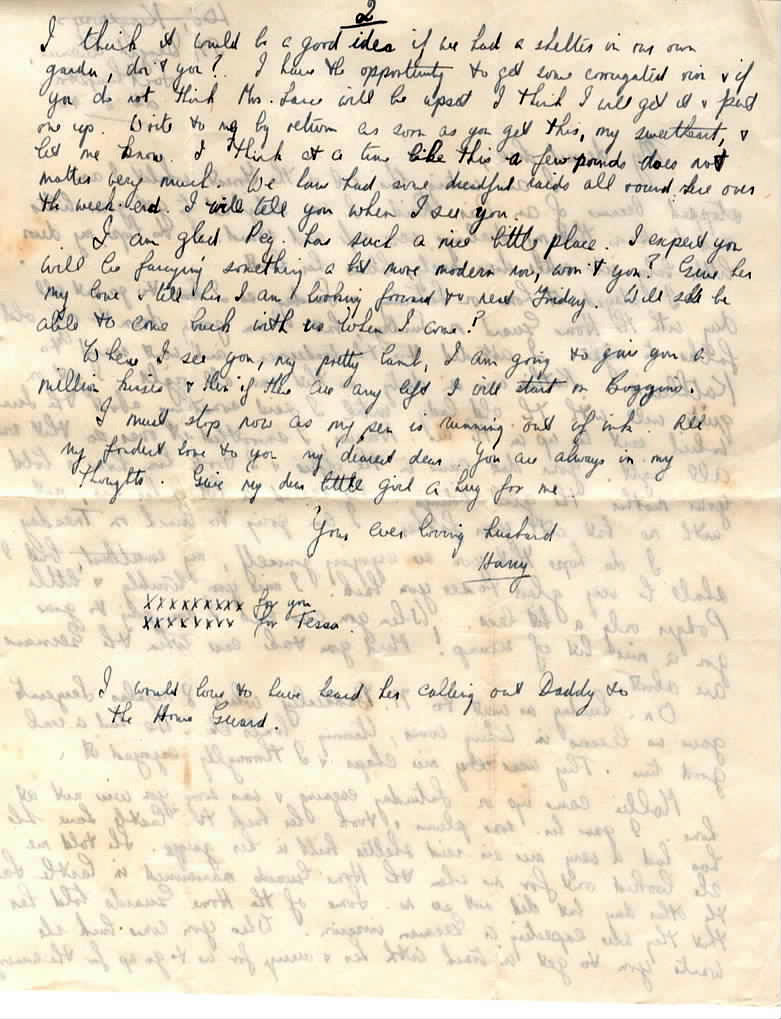 2
I think it would be a good idea if we had a shelter in our own
garden, don't you? I have the opportunity to get some corrugated iron & if
you do not think Mrs. will be upset I think I will get it & put
one up. Write to me by return as soon as you get this, my sweetheart, &
let me know. I think at a time like this a few pounds does not
matter very much. We have had some dreadful raids all round here over
the week-end. I will tell you when I see you.
I am glad Peg. has such a nice little place. I expect you
will be fancying something a bit more modern now, won't you? Give her
my love & tell her I am looking forward to next Friday. Will she be
able to come back with us when I come?
When I see you, my pretty lamb, I am going to give you a
million kisses & then if there are any left I will start on Boggins.
I must stop now as my pen is running out of ink. All
my fondest love to you my dearest dear. You are always in my
thoughts. Give my dear little girl a hug for me.
Your ever loving husband
Harry
xxxxxxxxx for you
xxxxxxxx for Tessa.
I would love to have heard her calling out Daddy to
the Home Guard.